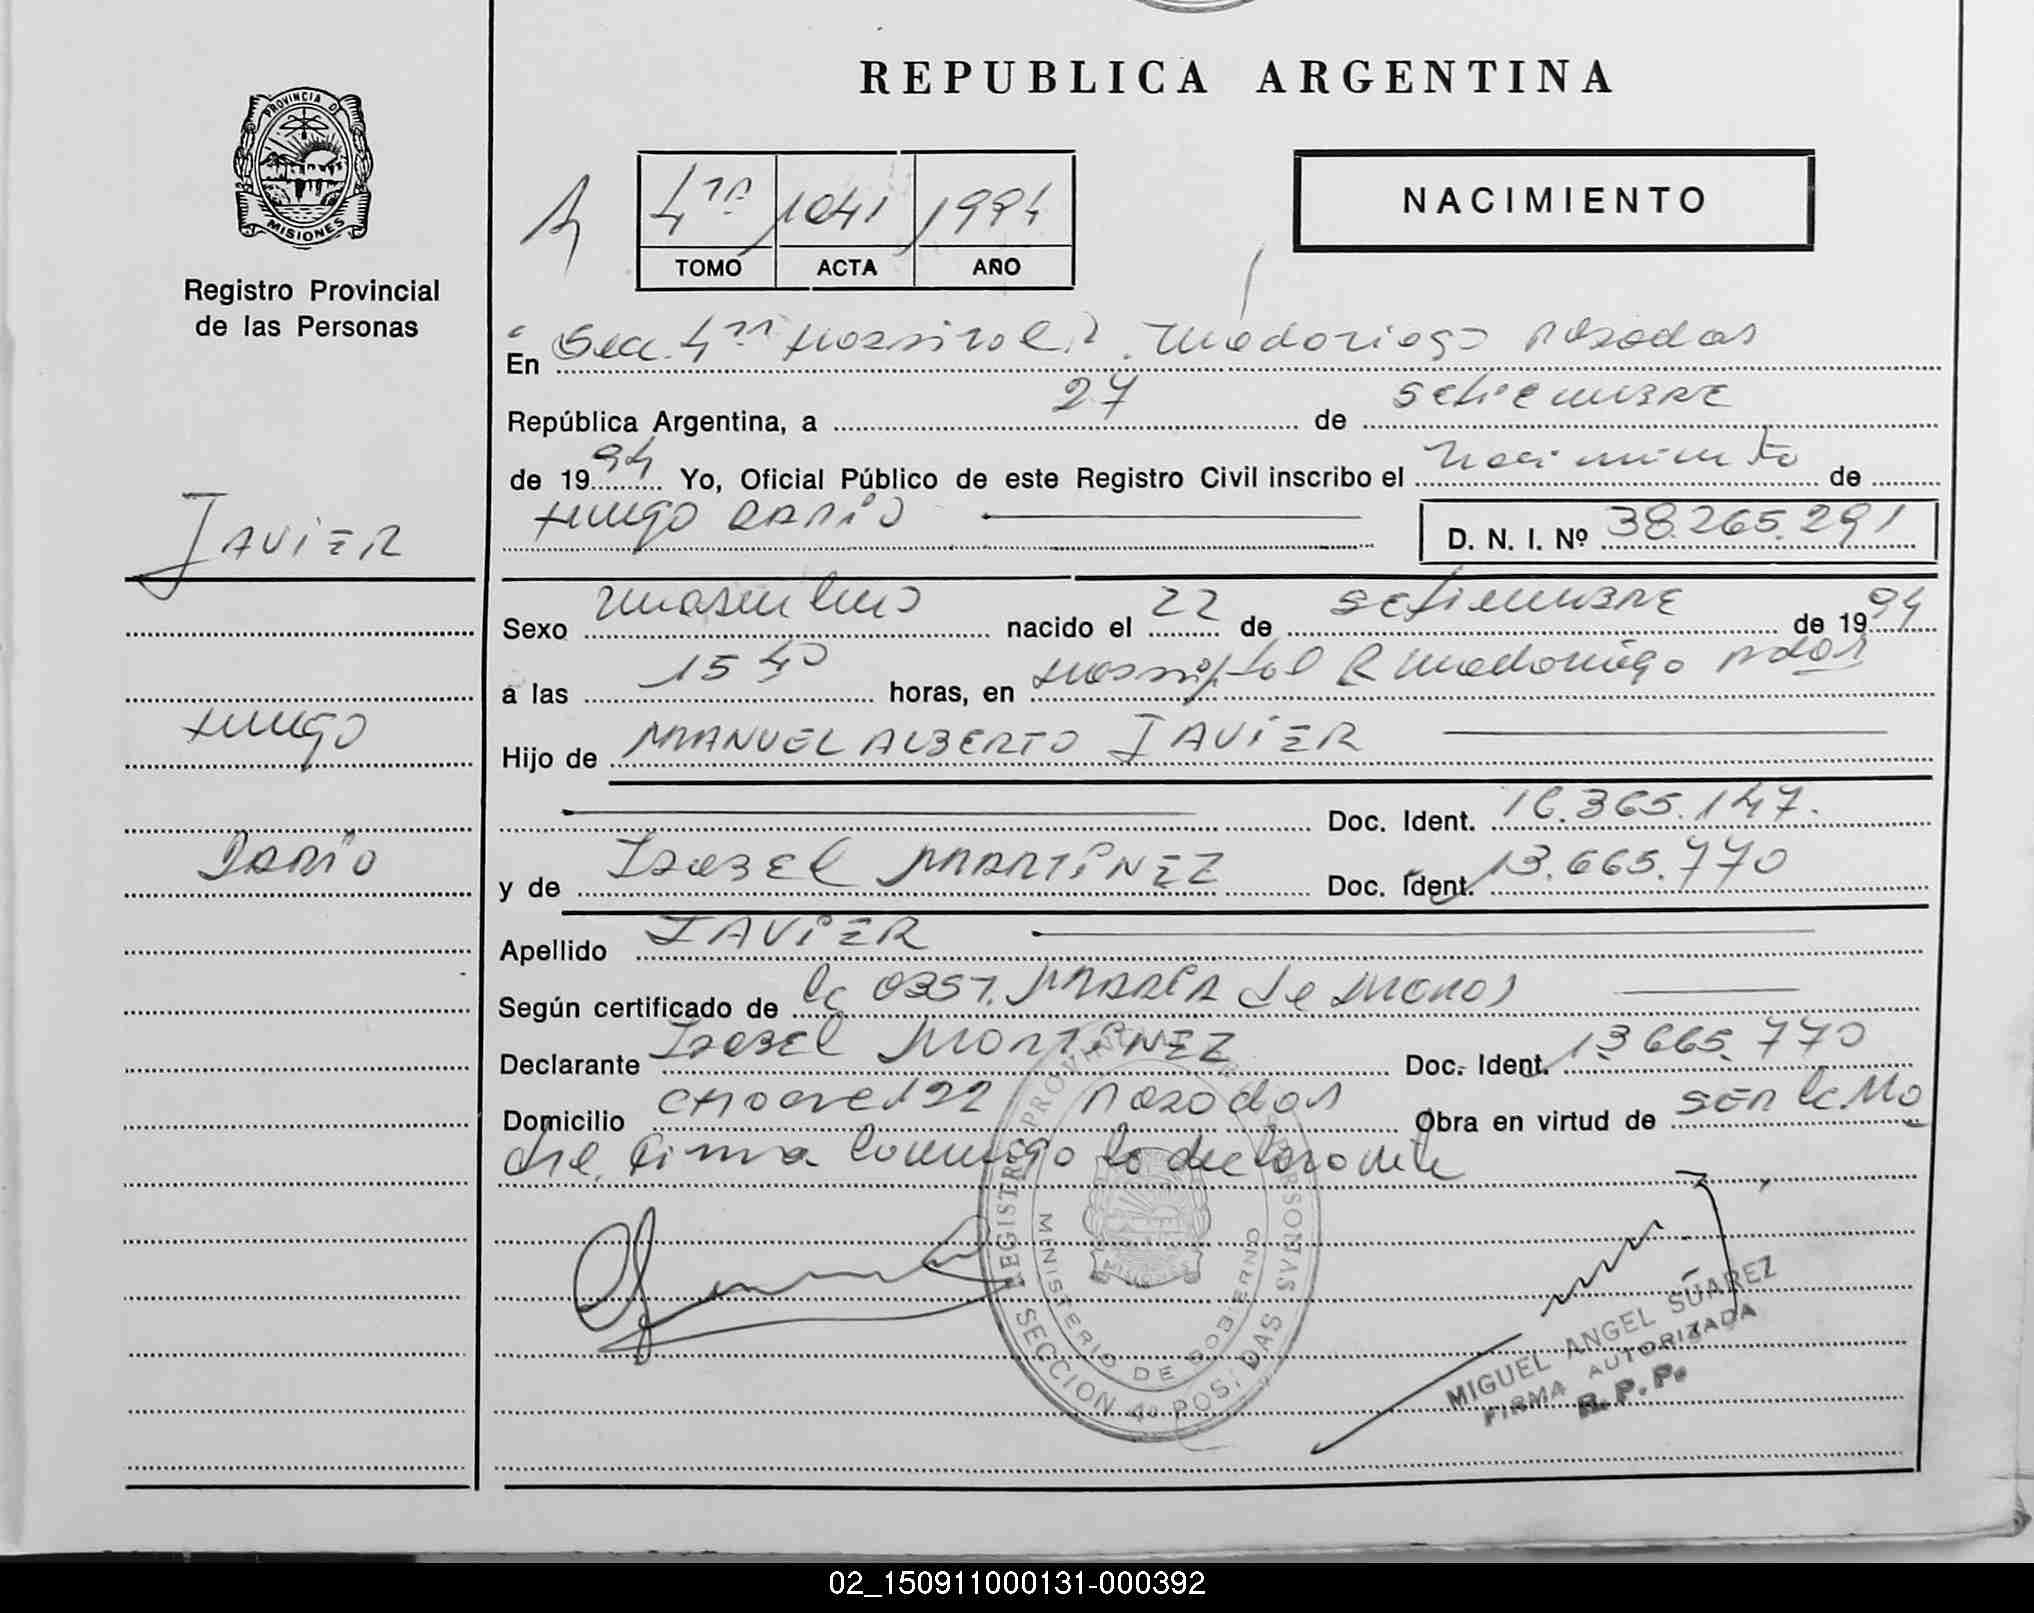 REPUBLICA ARGENTINA
PROVINCIA D
MISIONES
Registro Provincial
de las Personas
4ta 1041 1994
TOMO ACTA AÑO
NACIMIENTO
En Sec. 4ta Hospital R. Madariaga Posadas
República Argentina, a 27 de Setiembre
de 1994 Yo, Oficial Público de este Registro Civil inscribo el Nacimiento de
Hugo Darío D. N. I. Nº 38.265.291
JAVIER
Hugo
Darío
Sexo masculino nacido el 22 de Setiembre de 1994
a las 15 40 horas, en Hospital R Madariaga Pdas
Hijo de MANUEL ALBERTO JAVIER
Doc. Ident. 16.365.147.
y de Isabel MARTÍNEZ Doc. Ident. 13.665.770
Apellido JAVIER
Según certificado de la obst. María de
Declarante Isabel Martínez Doc. Ident. 13.665.770
Domicilio 122 Posadas Obra en virtud de ser la Ma
dre. Firma conmigo la declarante
REGISTRO PROVINCIAL DE LAS PERSONAS
MINISTERIO DE GOBIERNO
SECCION 4ª POSADAS
MISIONES
MIGUEL ANGEL SUAREZ
FIRMA AUTORIZADA
R.P.P.
02_150911000131-000392